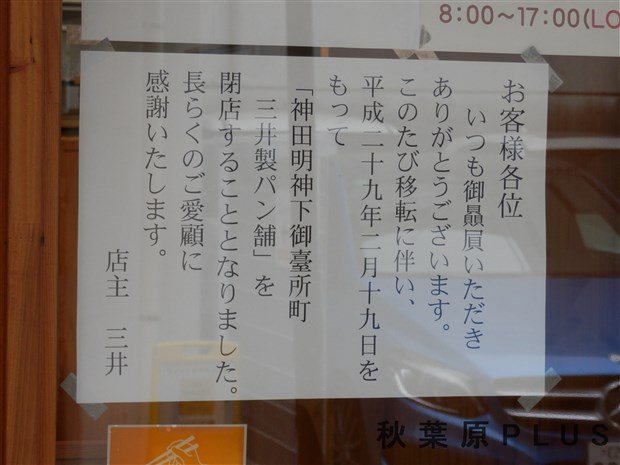 8:00～17:00(LO
お客様各位
いつも御贔屓いただき
ありがとうございます。
このたび移転に伴い、
平成二十九年二月十九日を
もって
「神田明神下御臺所町
三井製パン舗」を
閉店することとなりました。
長らくのご愛顧に
感謝いたします。
店主 三井
秋葉原PLUS